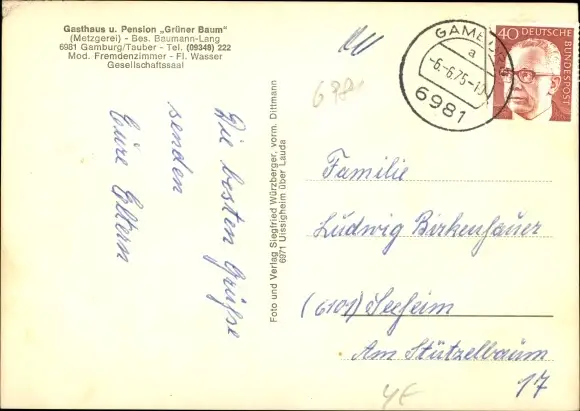 Gasthaus u. Pension „Grüner Baum"
(Metzgerei) - Bes. Baumann-Lang
6981 Gamburg/Tauber - Tel. (09348) 222
Mod. Fremdenzimmer - Fl. Wasser
Gesellschaftssaal
Die besten Grüße
senden
Eure Eltern
Foto und Verlag Siegfried Würzberger, vorm. Dittmann
6971 Uissigheim über Lauda
GAMBURG
a
-6.-6.75-1
6981
40 DEUTSCHE
BUNDESPOST
Familie
Ludwig Birkenhauer
(6101) Seeheim
Am Stützelbaum
17
4€